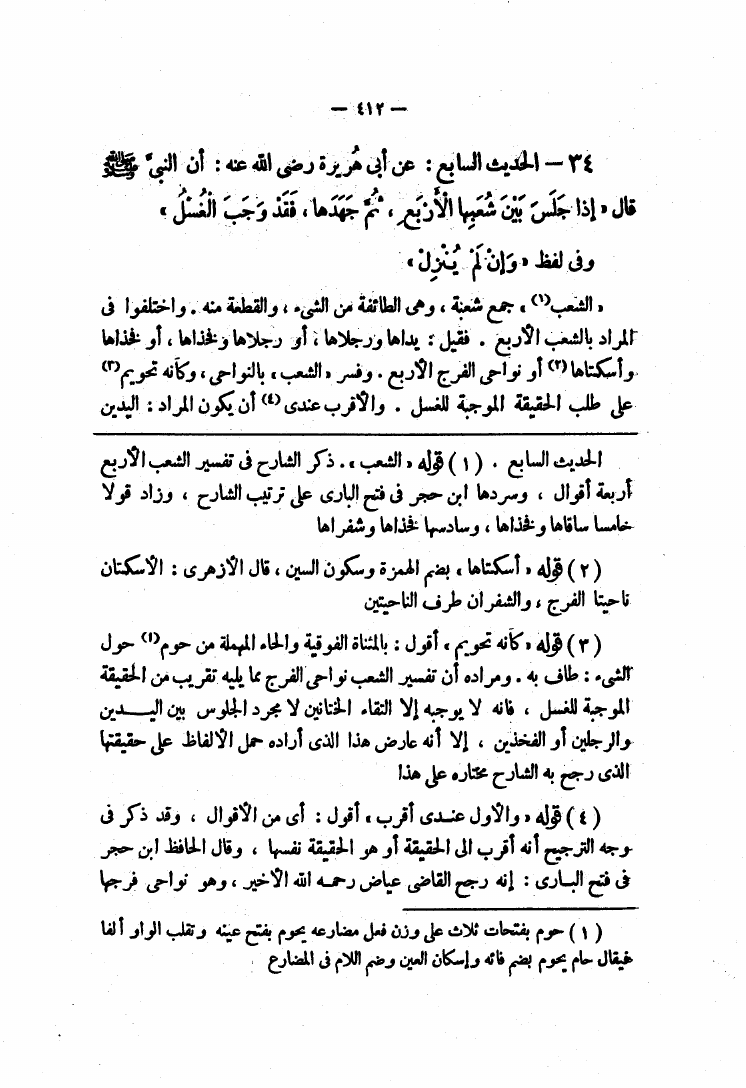 — ٤١٢ —
٣٤ — الحديث السابع : عن أبى هُريرة رضى الله عنه : أن النبىَّ ﷺ
قال « إذا جَلَسَ بَيْنَ شُعَبِها الْأَرْبَعِ ، ثُمَّ جَهَدَها ، فَقَدْ وَجَبَ الْغُسْلُ »
وفى لفظ « وَإِنْ لَمْ يُنْزِلْ »
« الشعب(١) ، جمع شعبة ، وهى الطائفة من الشىء ، والقطعة منه . واختلفوا فى
المراد بالشعب الأربع . فقيل : يداها ورجلاها ، أو رجلاها وفخذاها ، أو فخذاها
وأسكتاها(٢) أو نواحى الفرج الأربع . وفسر « الشعب ، بالنواحى ، وكأنه تحويم(٣)
على طلب الحقيقة الموجبة للغسل . والأقرب عندى(٤) أن يكون المراد : اليدين
الحديث السابع . (١) قوله « الشعب ، . ذكر الشارح فى تفسير الشعب الأربع
أربعة أقوال ، وسردها ابن حجر فى فتح البارى على ترتيب الشارح ، وزاد قولا
خامسا ساقاها وفخذاها ، وسادسها فخذاها وشفراها
(٢) قوله « أسكتاها ، بضم الهمزة وسكون السين ، قال الأزهرى : الأسكتان
ناحيتا الفرج ، والشفران طرف الناحيتين
(٣) قوله « كأنه تحويم ، أقول : بالمثناة الفوقية والحاء المهملة من حوم(١) حول
الشىء : طاف به . ومراده أن تفسير الشعب نواحى الفرج مما يليه تقريب من الحقيقة
الموجبة للغسل ، فانه لا يوجبه إلا التقاء الختانين لا مجرد الجلوس بين اليـــدين
والرجلين أو الفخذين ، إلا أنه عارض هذا الذى أراده حمل الألفاظ على حقيقتها
الذى رجح به الشارح مختاره على هذا
(٤) قوله « والأول عنـدى أقرب ، أقول : أى من الأقوال ، وقد ذكر فى
وجه الترجيح أنه أقرب الى الحقيقة أو هو الحقيقة نفسها ، وقال الحافظ ابن حجر
فى فتح البـارى : إنه رجح القاضى عياض رحمـه الله الأخير ، وهو نواحى فرجها
(١) حوم بفتحات ثلاث على وزن فعل مضارعه يحوم بفتح عينه وتقلب الواو ألفا
فيقال حام يحوم بضم فائه وإسكان العين وضم اللام فى المضارع